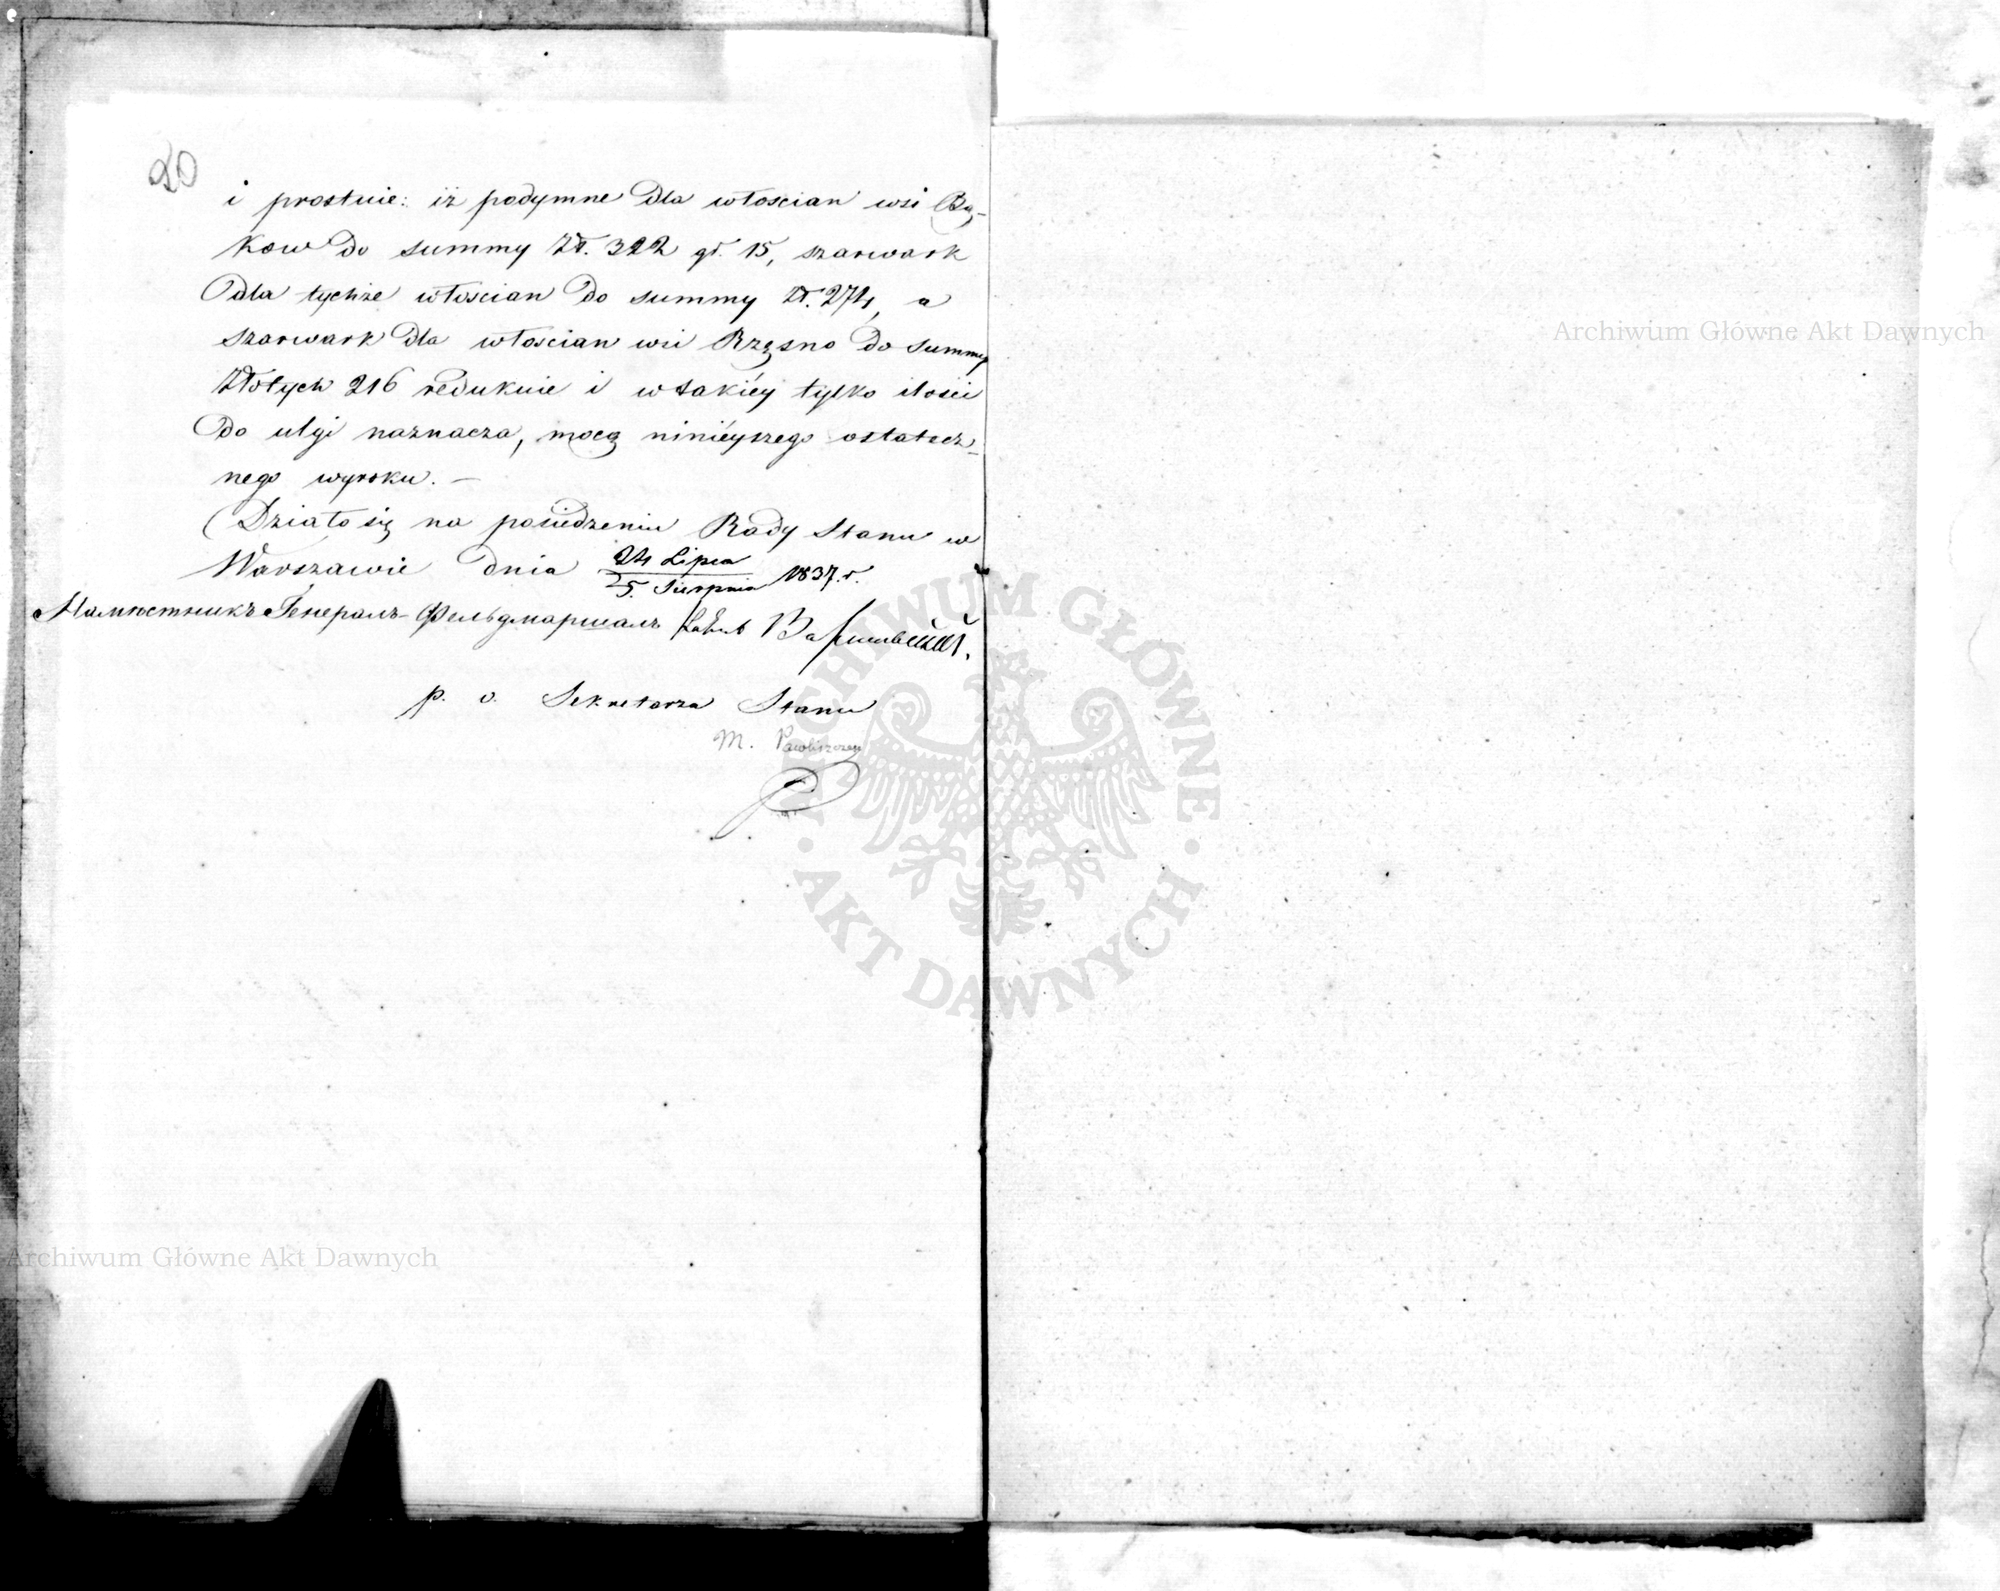 20
i prostuie: iż podymne dla włoscian wsi Bę-
kow do summy Zł. 322 gr. 15, szarwark
dla tychże włoscian do summy Zł. 274, a
szarwark dla włoscian wsi Rzęsno do summy
Złotych 216 redukuie i w takiéy tylko ilości
do ulgi naznacza, mocą ninieyszego ostatecz-
nego wyroku. —
Działo się na posiedzeniu Rady Stanu w
Warszawie dnia 24 Lipca / 5. Sierpnia 1837. r.
Намѣстникъ Генералъ-Фельдмаршалъ Варшавскій.
p. o. Sekretarza Stanu
M. Pawliszczew
Archiwum Główne Akt Dawnych
Archiwum Główne Akt Dawnych
ARCHIWUM GŁÓWNE · AKT DAWNYCH ·